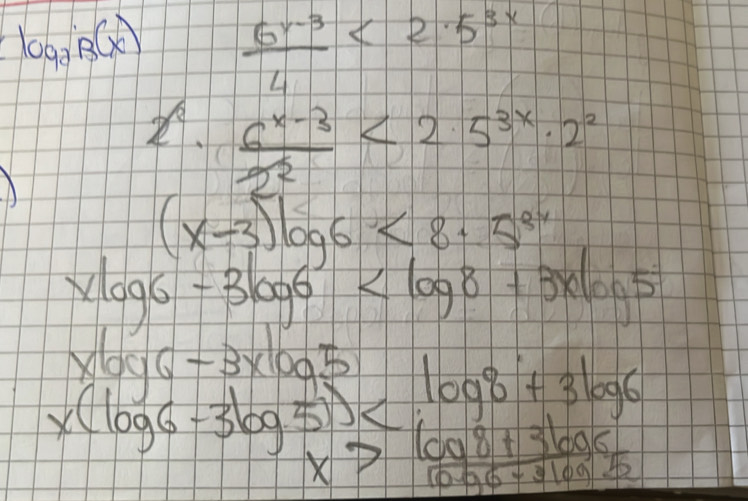 log₂B(x)
6^{x-3}/4 < 2·5^{3x}
2²· 6^{x-3}/2² < 2·5^{3x}·2²
)
(x-3)log6 < 8·5^{3x}
xlog6 - 3log6 < log8 + 3xlog5
xlog6 - 3xlog5
log8 + 3log6
x(log6 - 3log5) <
x > (log8 + 3log6)/(log6 - 3log5)